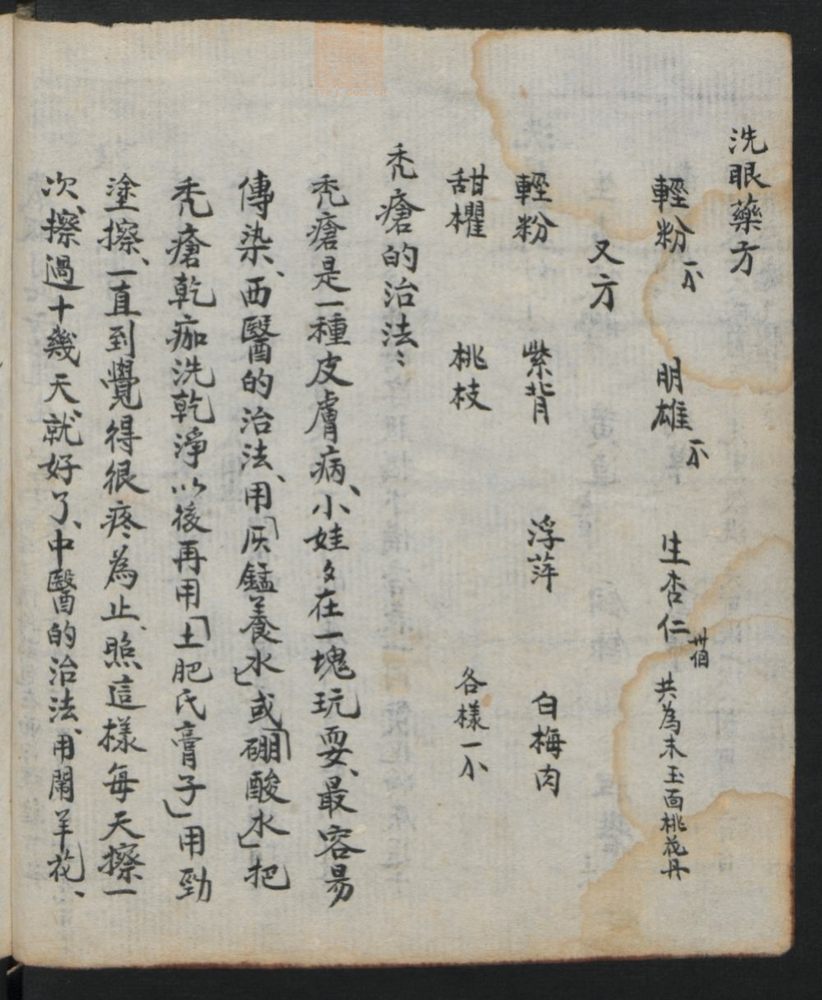 洗眼藥方
輕粉 明雄 生杏仁 卅個 共為末 玉面桃花丹
又方
輕粉 紫背 浮萍 白梅肉
甜櫂 桃枝 各樣一小
禿瘡的治法：
禿瘡是一種皮膚病、小娃々在一塊玩耍、最容易
傳染、西醫的治法、用「灰錳養水」或「硼酸水」把
禿瘡乾痂洗乾淨以後再用「土肥氏膏子」用勁
塗擦、一直到覺得很疼為止、照這樣每天擦一
次、擦過十幾天、就好了、中醫的治法、用鬧羊花、